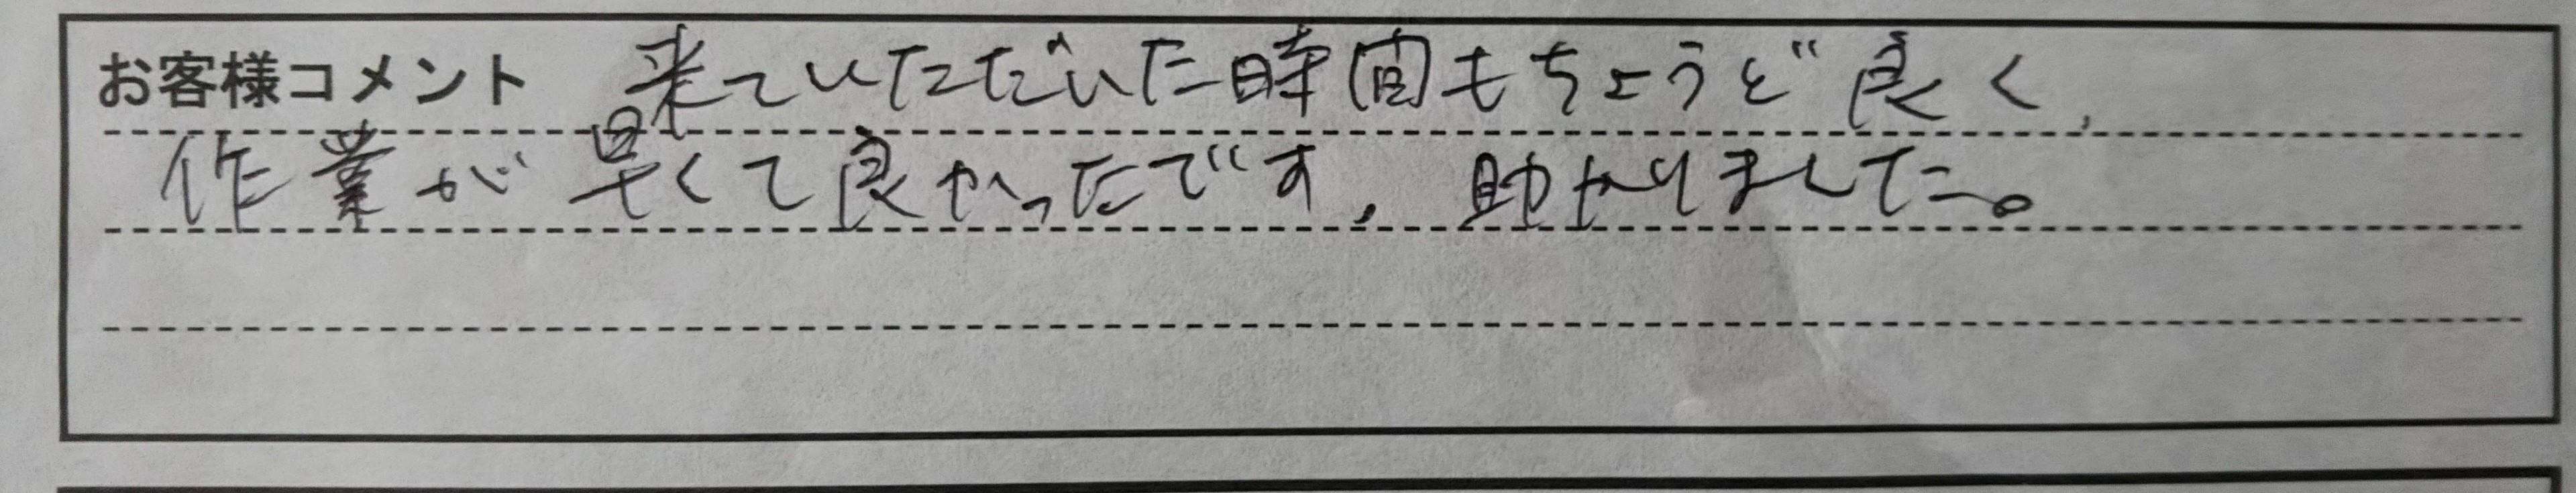 お客様コメント 来ていただいた時間もちょうど良く、
作業が早くて良かったです、助かりました。